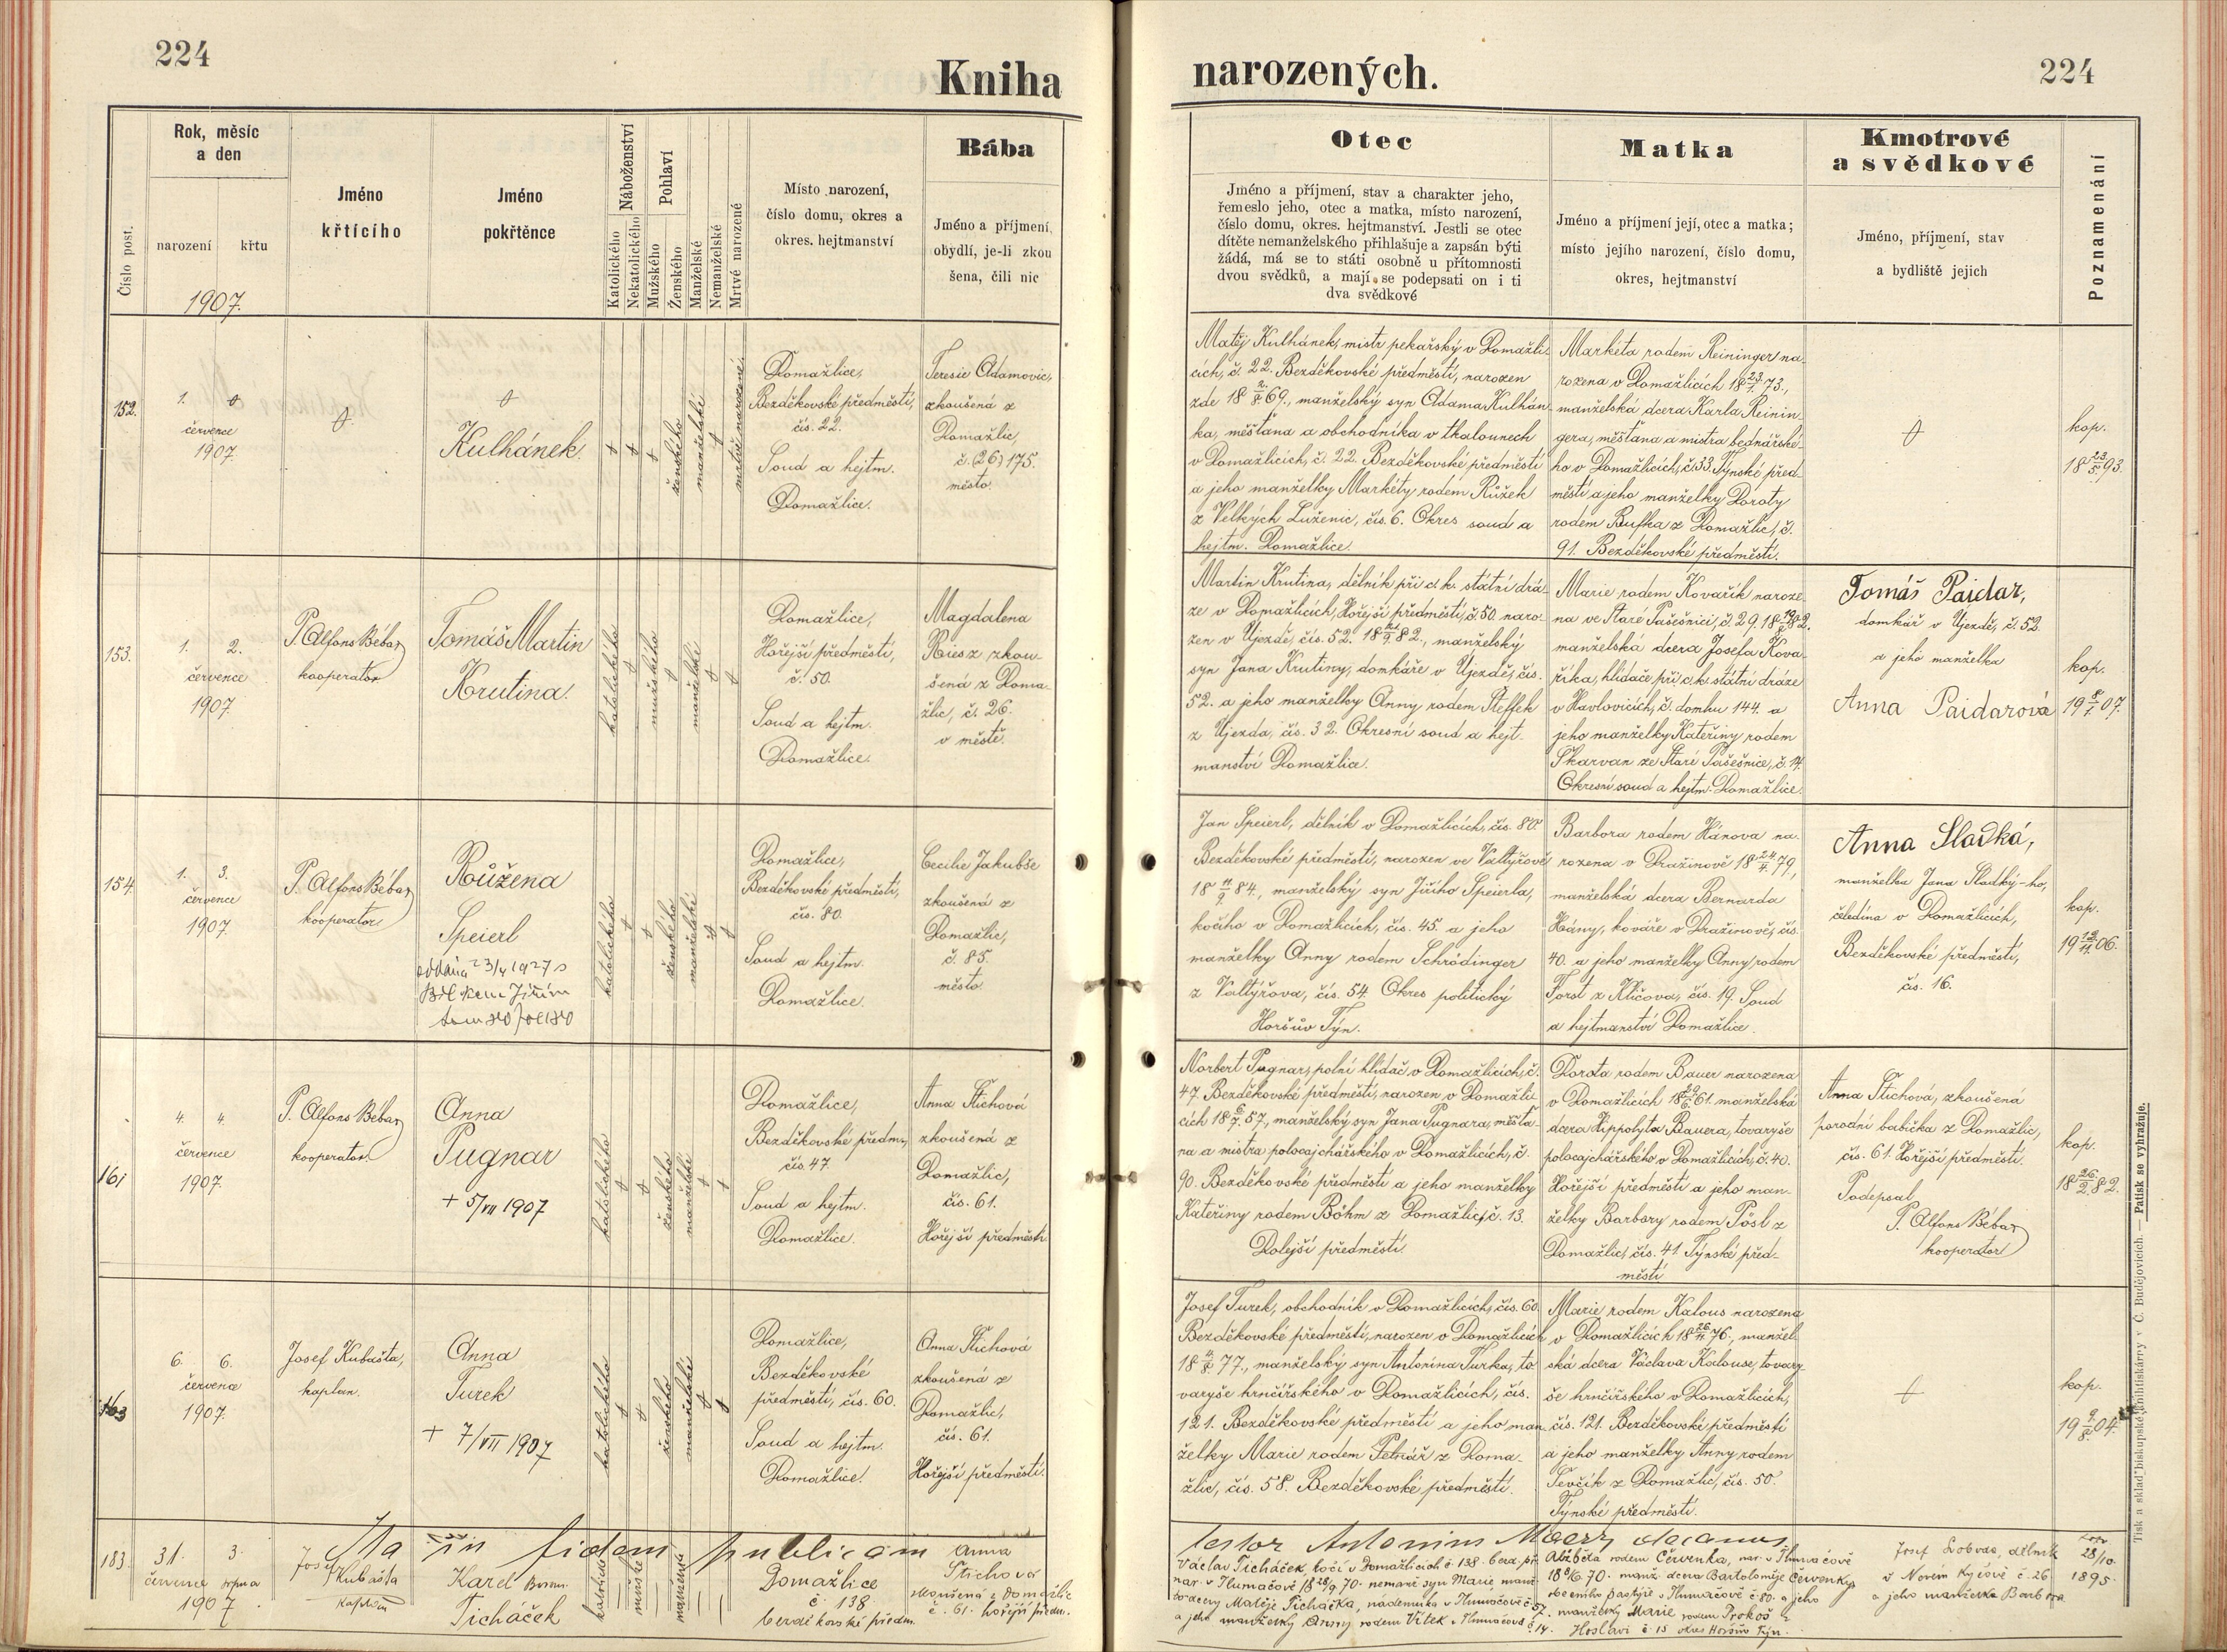 224
Kniha
narozených.
224
Číslo post.
Rok, měsíc
a den
narození
křtu
1907.
Jméno
křtícího
Jméno
pokřtěnce
Náboženství
Katolického
Nekatolického
Pohlaví
Mužského
Ženského
Manželské
Nemanželské
Mrtvé narozené
Místo narození,
číslo domu, okres a
okres. hejtmanství
Bába
Jméno a příjmení,
obydlí, je-li zkou
šena, čili nic
Otec
Jméno a příjmení, stav a charakter jeho,
řemeslo jeho, otec a matka, místo narození,
číslo domu, okres. hejtmanství. Jestli se otec
dítěte nemanželského přihlašuje a zapsán býti
žádá, má se to státi osobně u přítomnosti
dvou svědků, a mají se podepsati on i ti
dva svědkové
Matka
Jméno a příjmení její, otec a matka;
místo jejího narození, číslo domu,
okres, hejtmanství
Kmotrové
a svědkové
Jméno, příjmení, stav
a bydliště jejich
Poznamenání
152.
1.
července
1907.
Kulhánek.
ženského
manželské
mrtvě narozené
Domažlice,
Bezděkovské předměstí,
čís. 22.
Soud a hejtm.
Domažlice.
Teresie Adamovic,
zkoušená z
Domažlic,
č. (26) 175.
město.
Matěj Kulhánek, mistr pekařský v Domažli-
cích, č. 22. Bezděkovské předměstí, narozen
zde 18 2/8 69., manželský syn Adama Kulhán-
ka, měšťana a obchodníka v tkalounech
v Domažlicích, č. 22. Bezděkovské předměstí
a jeho manželky Markéty rodem Růžek
z Velkých Luženic, čís. 6. Okres soud a
hejtm. Domažlice.
Markéta rodem Reininger na-
rozena v Domažlicích 18 23/1 73.,
manželská dcera Karla Reinin-
gera, měšťana a mistra bednářské-
ho v Domažlicích, č. 33. Týnské před-
městí a jeho manželky Doroty
rodem Bufka z Domažlic, č.
91. Bezděkovské předměstí.
kop.
18 23/5 93.
153.
1. 2.
července
1907.
P. Alfons Bébar
kooperator
Tomáš Martin
Krutina.
katolického
mužského
manželské
Domažlice,
Hořejší předměstí,
č. 50.
Soud a hejtm.
Domažlice.
Magdalena
Riesz zkou-
šená z Doma-
žlic, č. 26.
v městě.
Martin Krutina, dělník při c. k. státní drá-
ze v Domažlicích, Hořejší předměstí, č. 50. naro-
zen v Újezdě, čís. 52. 82., manželský
syn Jana Krutiny, domkáře v Újezdě, čís.
52. a jeho manželky Anny rodem Steffek
z Újezda, čís. 32. Okresní soud a hejt-
manství Domažlice.
Marie rodem Kovařík naroze-
na ve Staré Pasečnici, č. 29.
manželská dcera Josefa Kova-
říka, hlídače při c. k. státní dráze
v Havlovicích, č. domku 144. a
jeho manželky Kateřiny rodem
Skarvan ze Staré Pasečnice, č. 14.
Okresní soud a hejtm. Domažlice.
Tomáš Paidar,
domkář v Újezdě, č. 52.
a jeho manželka
Anna Paidarová
kop.
19 8/1 07.
154.
1. 3.
července
1907.
P. Alfons Bébar
kooperator
Růžena
Speierl
oddána 23/4 1927 s
Jiřím
katolického
ženského
manželské
Domažlice,
Bezděkovské předměstí,
čís. 80.
Soud a hejtm.
Domažlice.
Cecilie Jakubše
zkoušená z
Domažlic,
č. 85.
město.
Jan Speierl, dělník v Domažlicích, čís. 80.
Bezděkovské předměstí, narozen ve Valtýřově
18 11/9 84., manželský syn Jiřího Speierla,
kočího v Domažlicích, čís. 45. a jeho
manželky Anny rodem Schrödinger
z Valtýřova, čís. 54. Okres politický
Horšův Týn.
Barbora rodem Hánova na-
rozena v Dražinově 18 24/4 79.,
manželská dcera Bernarda
Hány, kováře v Dražinově, čís.
40. a jeho manželky Anny rodem
Forst z Klíčova, čís. 19. Soud
a hejtmanství Domažlice.
Anna Sladká,
manželka Jana Sladký-ho,
čeledína v Domažlicích,
Bezděkovské předměstí,
čís. 16.
kop.
19 13/11 06.
161
4. 4.
července
1907.
P. Alfons Bébar
kooperator.
Anna
Pugnar
+ 5/VII 1907
katolického
ženského
manželské
Domažlice,
Bezděkovské předm.,
čís. 47.
Soud a hejtm.
Domažlice.
Anna Stichová
zkoušená z
Domažlic,
čís. 61.
Hořejší předměstí.
Norbert Pugnar, polní hlídač v Domažlicích, č.
47. Bezděkovské předměstí, narozen v Domažli-
cích 18 6/7 57., manželský syn Jana Pugnara, měšťa-
na a mistra polocajchářského v Domažlicích, č.
90. Bezděkovské předměstí a jeho manželky
Kateřiny rodem Böhm z Domažlic, č. 13.
Dolejší předměstí.
Dorota rodem Bauer narozena
v Domažlicích 61. manželská
dcera Hippolyta Bauera, tovaryše
polocajchářského v Domažlicích, č. 40.
Hořejší předměstí a jeho man-
želky Barbory rodem Pösl z
Domažlic, čís. 41. Týnské před-
městí
Anna Stichová, zkoušená
porodní babička z Domažlic,
čís. 61. Hořejší předměstí.
Podepsal
P. Alfons Bébar
kooperator
kop.
18 26/2 82.
163
6. 6.
července
1907.
Josef Kubašta,
kaplan.
Anna
Turek
+ 7/VII 1907
katolického
ženského
manželské
Domažlice,
Bezděkovské
předměstí, čís. 60.
Soud a hejtm.
Domažlice.
Anna Stichová
zkoušená z
Domažlic,
čís. 61.
Hořejší předměstí.
Josef Turek, obchodník v Domažlicích, čís. 60.
Bezděkovské předměstí, narozen v Domažlicích
77., manželský syn Antonína Turka, to-
varyše hrnčířského v Domažlicích, čís.
121. Bezděkovské předměstí a jeho man-
želky Marie rodem Petrnář z Doma-
žlic, čís. 58. Bezděkovské předměstí.
Marie rodem Kalous narozena
v Domažlicích 18 26/11 76., manžel-
ská dcera Václava Kalouse, tovary-
še hrnčířského v Domažlicích,
čís. 121. Bezděkovské předměstí
a jeho manželky Anny rodem
Ševčík z Domažlic, čís. 50.
Týnské předměstí.
kop.
19 9/8 04.
Ita in fidem publicam
testor Antonius Maerz decanus
183.
31. 3.
července srpna
1907
Josef
Kubašta
kaplan
Karel
Ticháček
Domažlice
č. 138
bezděkovské předm.
Anna
Stichová
zkoušená z Domažlic
č. 61. hořejší předm.
Václav Ticháček, kočí v Domažlicích č. 138
nar. v Tlumačově 18 28/9 70. syn Marie
dcery Matěje Ticháčka, nádeníka v Tlumačově č. 57.
a jeho manželky Anny rodem Vítek z Tlumačova č. 14.
Alžběta rodem Červenka, nar. v Tlumačově
70. manž. dcera Bartoloměje Červenky,
obecního pastýře v Tlumačově č. 80. a jeho
manželky Marie rodem Prokoš z
č. 15 okres Horšův Týn.
Josef dělník
v Novém Kyčově č. 26
a jeho manželka Barbora
kop.
28/10
1895.
Tisk a sklad biskupské knihtiskárny v Č. Budějovicích. — Patisk se vyhražuje.